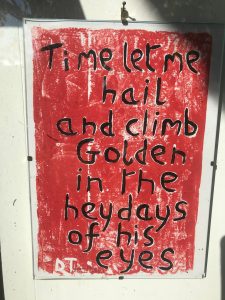 Time let me
hail
and climb
Golden
in the
heydays
of his
eyes
DT